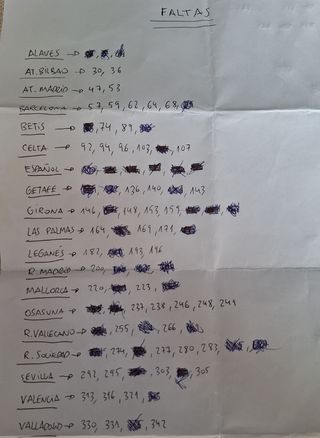 FALTAS
ALAVES →
AT. BILBAO → 30, 36
AT. MADRID → 47, 53
BARCELONA → 57, 59, 62, 64, 68,
BETIS → , 74, 89,
CELTA → 92, 94, 96, 103, , 107
ESPAÑOL →
GETAFE → 136, 140, , 143
GIRONA → 146, , 148, 153, 159,
LAS PALMAS → 164, , 169, 171,
LEGANÉS → 182, , 193, 196
R. MADRID →
MALLORCA → 220, , 223,
OSASUNA → 237, 238, 246, 248, 249
R. VALLECANO → , 255, , 266,
R. SOCIEDAD → , 274, , 277, 280, 283,
SEVILLA → 292, 295, , 303, , 305
VALENCIA → 313, 316, 321,
VALLADOLID → 330, 331, , 342